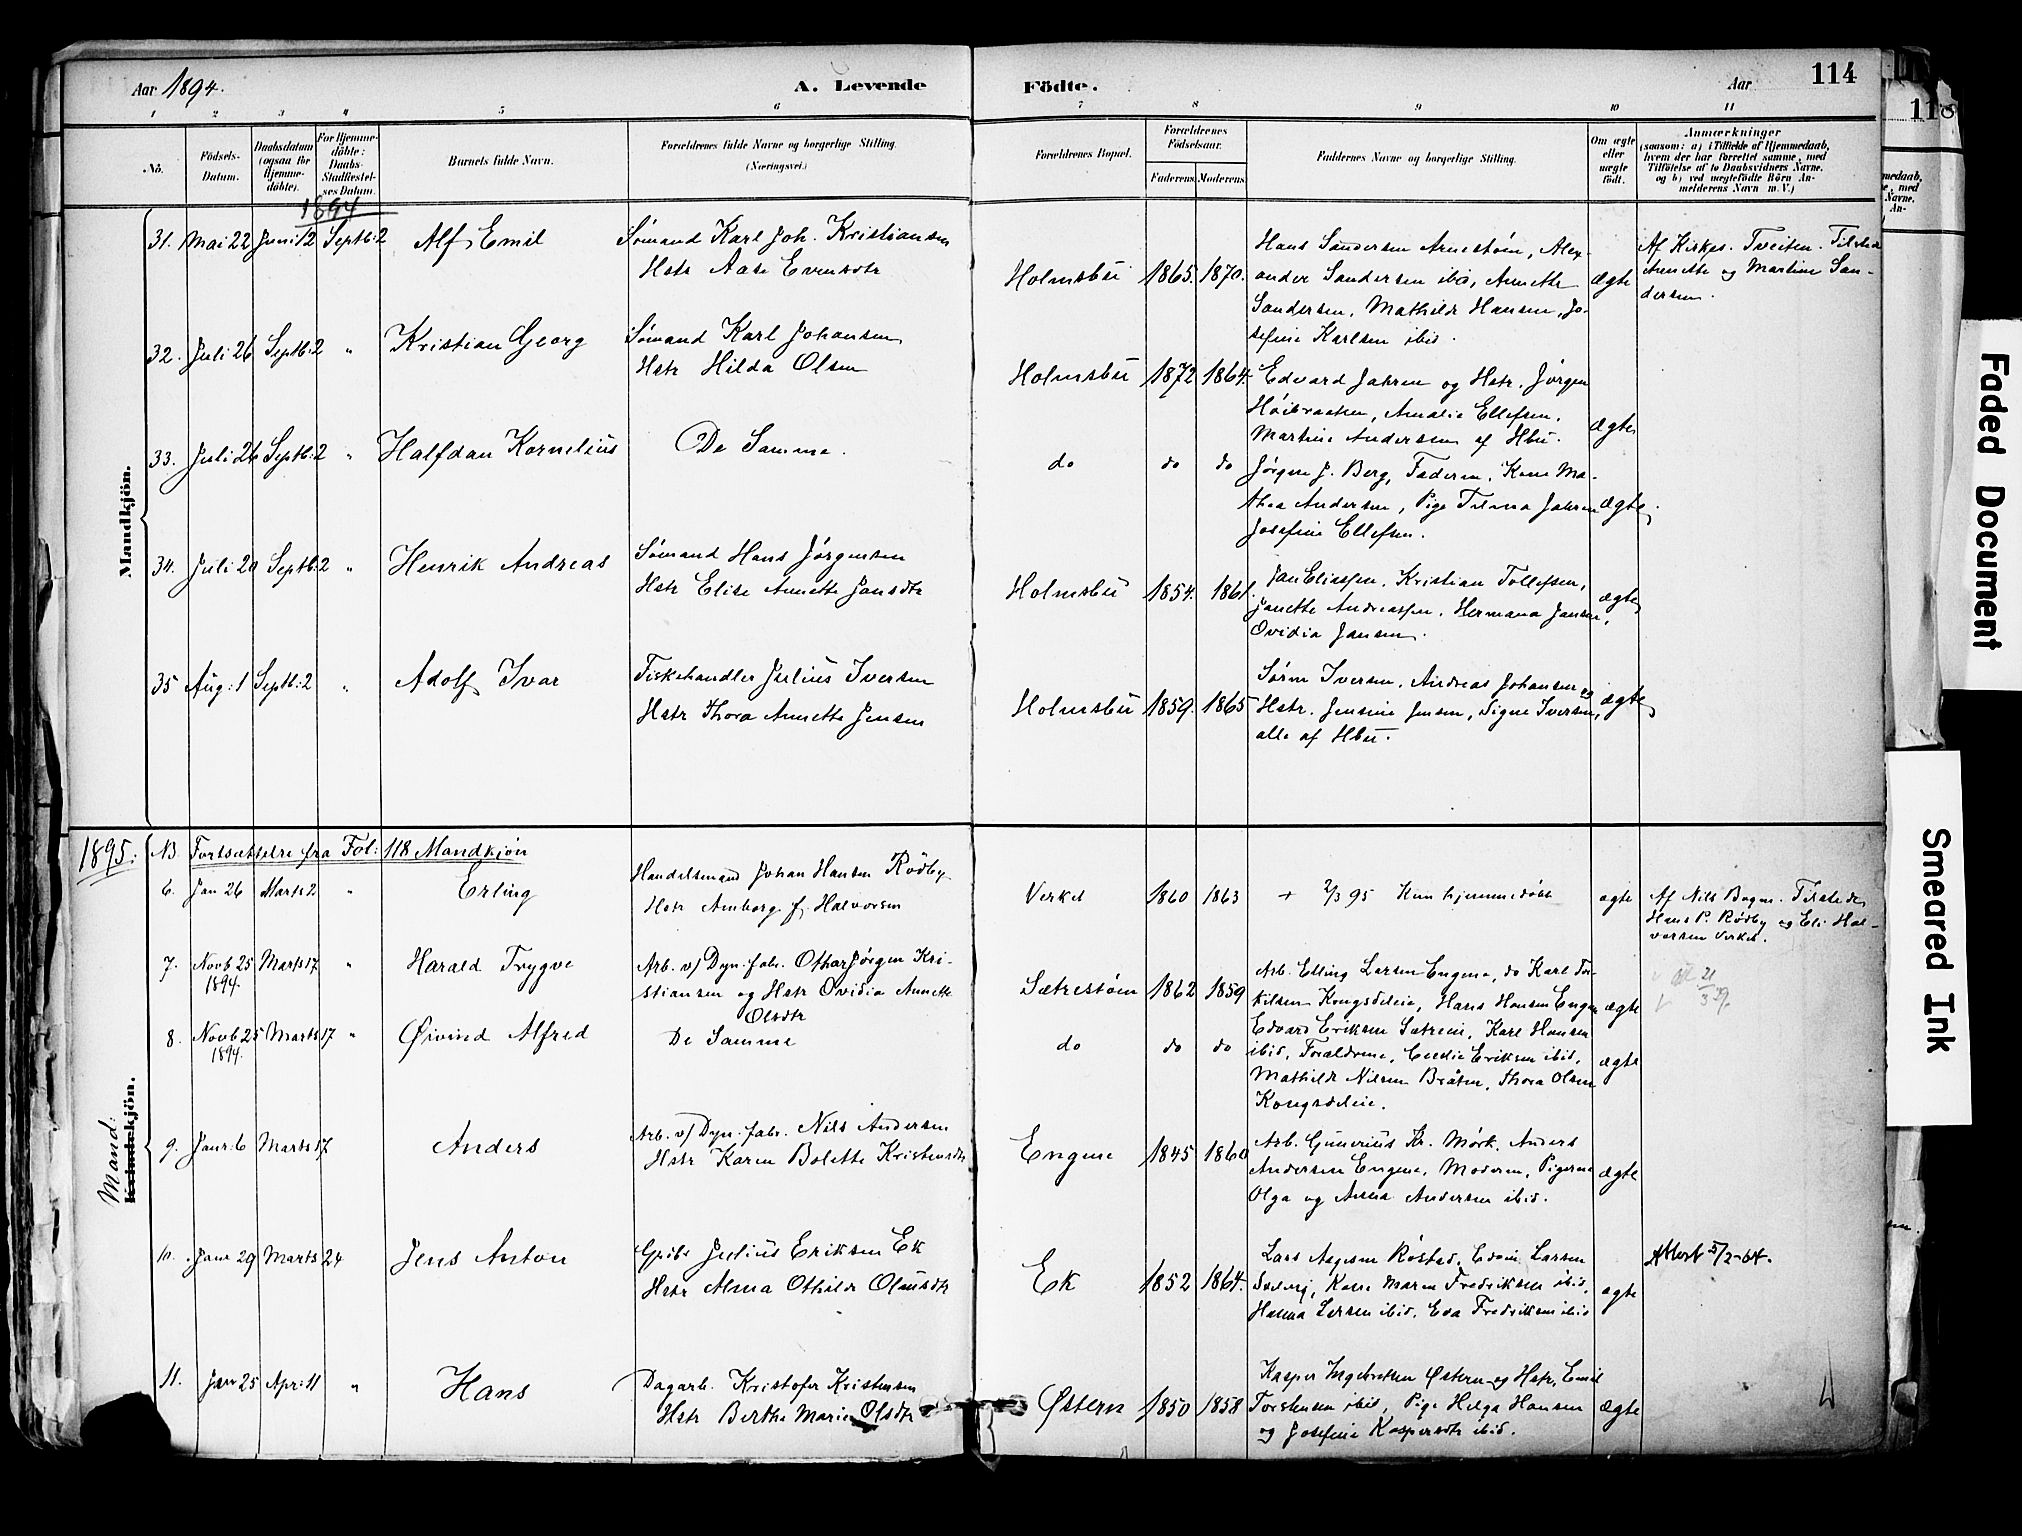 Aar 1894.
A. Levende
Födte.
Aar
114
118
1 2 3 4 5 6 7 8 9 10 11
No.
Födsels-Datum.
Daabsdatum (ogsaa for Hjemmedöbte).
For Hjemmedöbte: Daabs-Stadfæstelses Datum.
Barnets fulde Navn.
Forældrenes fulde Navne og borgerlige Stilling. (Næringsvei.)
Forældrenes Bopæl.
Forældrenes Födselsaar.
Faderens Moderens
Faddernes Navne og borgerlige Stilling.
Om ægte eller uægte födt.
Anmærkninger
(saasom: a) i Tilfælde af Hjemmedaab, hvem der har forrettet samme, med Tilföielse af to Daabsvidners Navne, og b) ved uægtefödte Börn Anmelderens Navn m. V.)
medaab,
med
Navne.
An-
Mandkjön.
1894
31. Mai 22 Juni 12 Septb: 2 Alf Emil
Sömand Karl Joh. Kristiansen
Hstr Aase Evensdtr
Holmsbu 1865. 1870.
Hans Sandersen Arnestøm, Alex-
ander Sandersen ibid, Annette
Sandersen, Mathilde Hansen, Jo-
sefine Karlsen ibid.
ægte
Af Kirkps. Tveiten. Tilstede
Annette og Martine San-
dersen.
32. Juli 26 Septb: 2 " Kristian Georg
Sömand Karl Johansen
Hstr Hilda Olsen
Holmsbu 1872 1864.
Edvard Jahren og Hstr. Jørgen
Høibraaten, Amalie Ellefsen.
Martine Andersen af Hbu.
ægte
33. Juli 26 Septb: 2 " Halfdan Kornelius
De Samme.
do do do
Jørgen J. Berg, Faderen, Kone Ma-
thea Andersen, Pige Tilma Jahren
Josefine Ellefsen.
ægte.
34. Juli 20 Septb: 2 " Henrik Andreas
Sömand Hans Jørgensen
Hstr Elise Annette Jansdtr
Holmsbu 1854. 1861.
Jan Eliassen, Kristian Tollefsen,
Janette Andreassen, Hermana Jansen,
Ovidia Jansen.
ægte
35 Aug: 1 Septb: 2 " Adolf Ivar
Fiskehandler Julius Iversen
Hstr Thora Annette Jensen
Holmsbu 1859. 1865
Sørn Iversen, Andreas Johansen og
Hstr. Jensine Jensen, Signe Iversen,
alle af Hbu.
ægte
1895: NB. Fortsættelse fra Fol: 118 Mandkjön
Mand:
Kvindekjön.
6. Jan 26 Marts 2 " Erling
Handelsmand Johan Hansen Rødby
Hstr Amborg f. Halvorsen
Verket 1860 1863
+ 2/3 95 Kun hjemmedøbt
ægte
Af Nils Bogen. Tilstede
Hans P. Rødby og Eli Hal-
vorsen Verket.
7. Novb 25 1894. Marts 17 " Harald Trygve
Arb. v/ Dyn. fabr. Othar Jørgen Kri-
stiansen og Hstr Ovidia Annette
Olsdtr
Sætrestøm 1862 1859
Arb. Elling Larsen Engene, do Karl Tor-
kilsen Kongsdeleie, Hans Hansen Engene
ægte
21/3 39.
8. Novb 25 1894. Marts 17 " Øivind Alfred
De Samme
do do do
Edvard Eriksen Sætreeie, Karl Hansen
ibid, Forældrene, Eriksen ibid,
Mathilde Nilsen Bråten, Thora Olsen
Kongsdeleie.
ægte
9. Janr: 6 Marts 17 Anders
Arb. v/ Dyn. fabr. Nils Andersen
Hstr Karen Bolette Kristensdtr
Engene 1845 1860
Arb. Gunerius Kr. Mørk, Anders
Andersen Engene, Moderen, Pigerne
Olga og Anna Andersen ibid.
ægte
10. Janr 29 Marts 24 Jens Anton
Gpbr Julius Eriksen Ek
Hstr Alma Othilde Olausdtr
Ek 1852 1864.
Lars Aagesen Røstad, Edvin Larsen
Kone Maren Fredriksen ibid,
Hanna Larsen ibid, Eva Fredriksen ibid
ægte
5/2-64.
11. Jan 25 Apr: 11 " Hans
Dagarb. Kristofer Kristensen
Hstr Berthe Marie Olsdtr
Østern 1850 1858
Kasper Ingebretsen Østern og Hstr, Emil
Torstensen ibid, Pige Helga Hansen
og Josefine Kaspersdtr ibid.
ægte
Faded Document
Smeared Ink